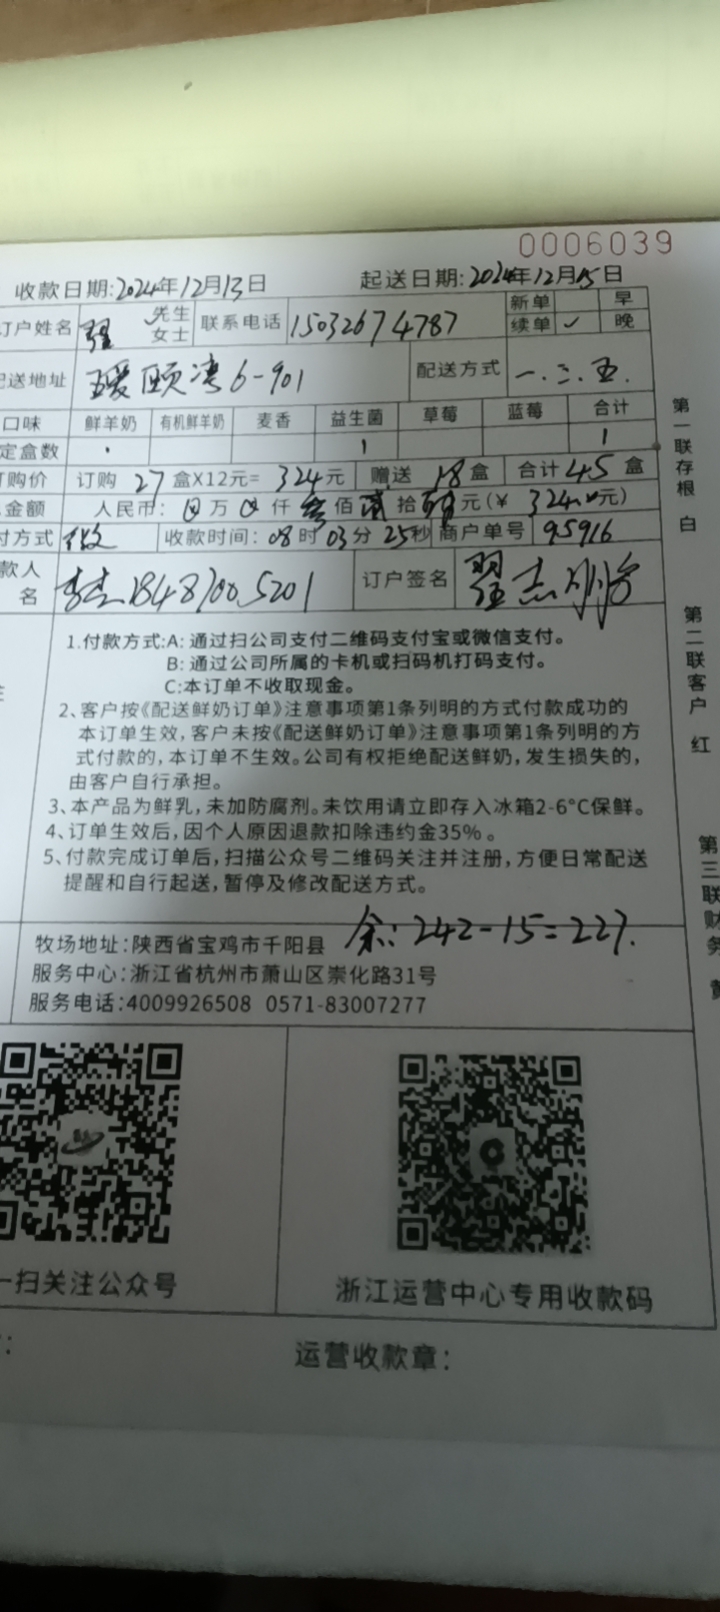 0006039
收款日期:2024年12月13日 起送日期:2024年12月15日
订户姓名 翟 先生 女士 联系电话 15032674787 新单 早 续单 ✓ 晚
送地址 瑷颐湾6-901 配送方式 一.三.五.
口味 鲜羊奶 有机鲜羊奶 麦香 益生菌 草莓 蓝莓 合计
定盒数 1 1
订购价 订购 27 盒X12元= 324元 赠送 18盒 合计45盒
金额 人民币: 万 仟 叁佰 贰拾 肆元(¥ 324.00元)
付方式 收款时间: 08时03分25秒 商户单号 95916
款人名 18487005201 订户签名 翟志刚
1.付款方式:A: 通过扫公司支付二维码支付宝或微信支付。
B: 通过公司所属的卡机或扫码机打码支付。
C:本订单不收取现金。
2、客户按《配送鲜奶订单》注意事项第1条列明的方式付款成功的
本订单生效,客户未按《配送鲜奶订单》注意事项第1条列明的方
式付款的,本订单不生效。公司有权拒绝配送鲜奶,发生损失的,
由客户自行承担。
3、本产品为鲜乳,未加防腐剂。未饮用请立即存入冰箱2-6°C保鲜。
4、订单生效后,因个人原因退款扣除违约金35%。
5、付款完成订单后,扫描公众号二维码关注并注册,方便日常配送
提醒和自行起送,暂停及修改配送方式。
余: 242-15=227.
牧场地址:陕西省宝鸡市千阳县
服务中心:浙江省杭州市萧山区崇化路31号
服务电话:4009926508 0571-83007277
一扫关注公众号 浙江运营中心专用收款码
运营收款章:
第一联存根 白
第二联客户 红
第三联财务 黄